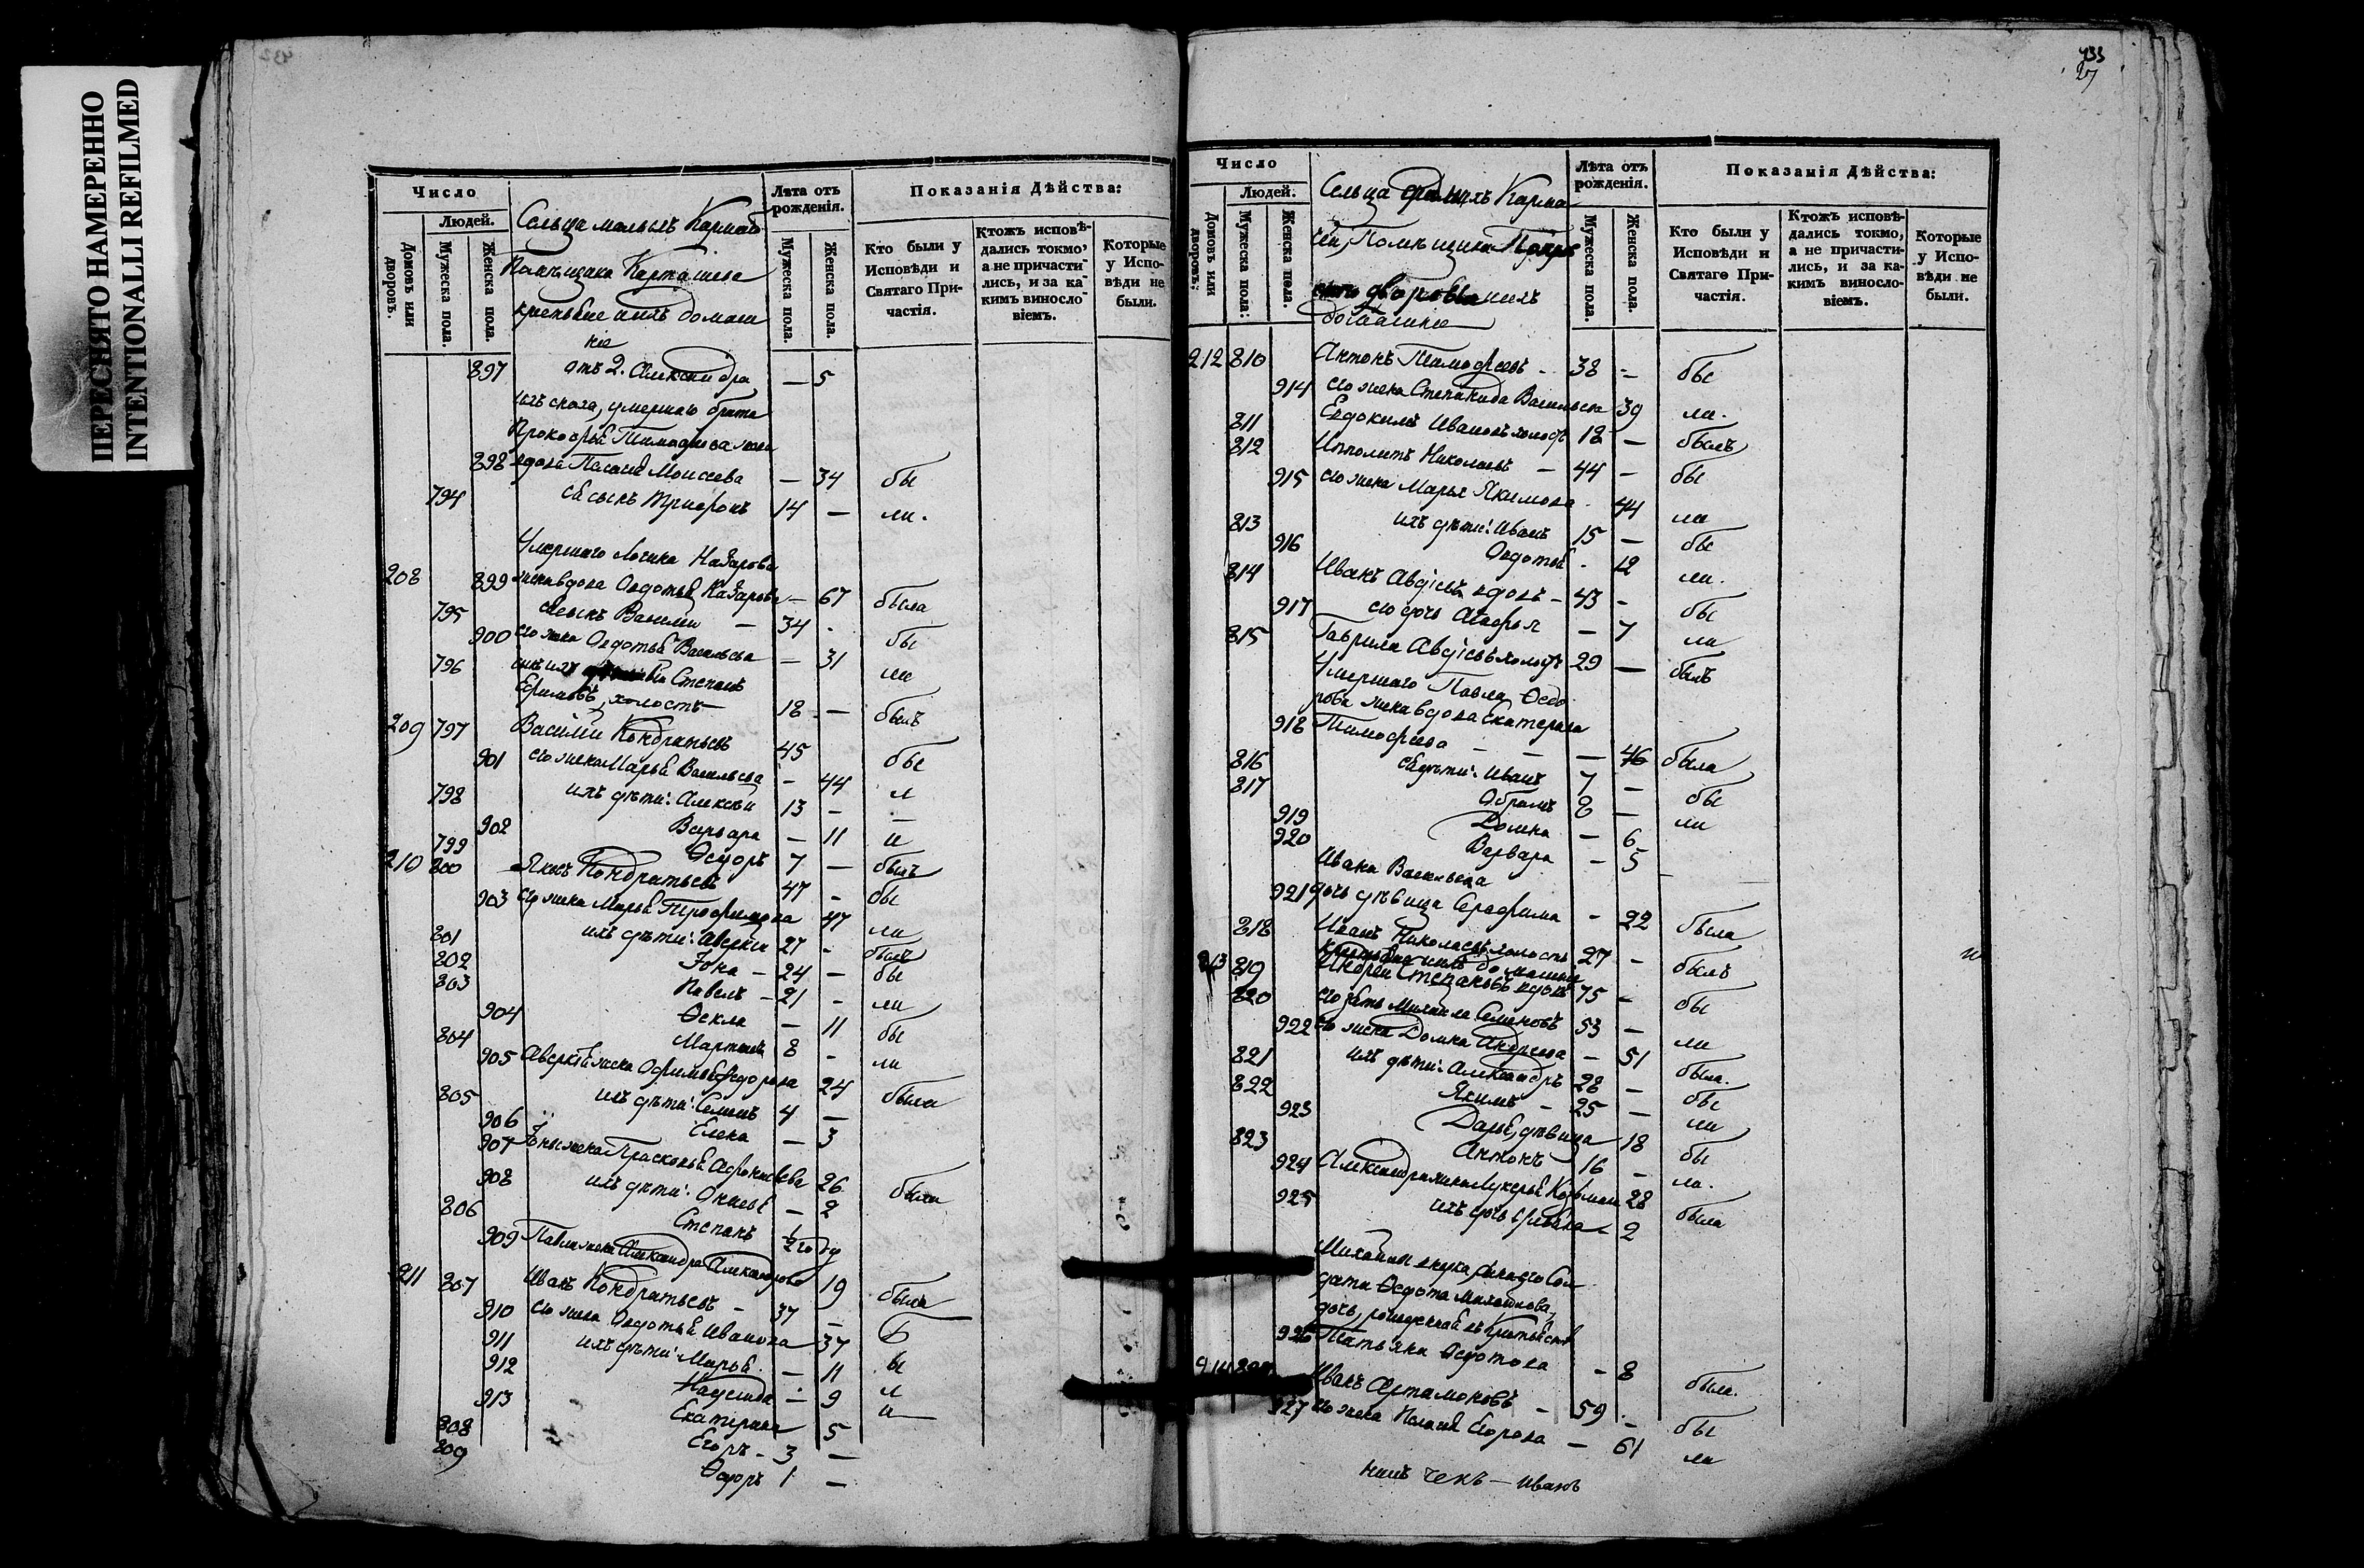 ПЕРЕСНЯТО НАМЕРЕННО
INTENTIONALLI REFILMED
Число
Людей.
Домовъ или дворовъ.
Мужеска пола.
Женска пола.
Сельца малыхъ
Помѣщика Карташева
крепостные ихъ домаш
ніе
Лѣта отъ рожденія.
Мужеска пола.
Женска пола.
Показанія Дѣйства:
Кто были у Исповѣди и Святаго Причастія.
Ктожъ исповѣдались токмо, а не причастились, и за какимъ винословіемъ.
Которые у Исповѣди не были.
897 отъ 2. Александра — 5
ихъ сноха, умершаго брата
Прокофья Тимофеева жена
898 вдова Пелагея Моисеева — 34 бы
794 ея сынъ Трифонъ 14 — ли.
Умершаго Логина Назарова
208 899 жена вдова Авдотья Назарова — 67 была
795 ея сынъ Василий — 34 - бы
900 его жена Авдотья Васильева — 31 ли
796 Степанъ
Ефимовъ, холостъ 18 — былъ
209 797 Василий Кондратьевъ 45 бы
901 его жена Марья Васильева - 44 л
798 ихъ дѣти: Алексѣй 13 — —
902 Варвара — 11 и
799 Ѳедоръ 7 — былъ
210 800 Яковъ Кондратьевъ 47 - бы
903 его жена Марья Трофимова 47 ли
801 ихъ дѣти: Аверкий 27 - былъ
802 Іона — 24 — бы
803 Павелъ — 21 - ли
904 Ѳекла — 11 бы
804 Мартинъ 8 - ли
905 Аверкія жена Офимья Ѳедорова 24 была
805 ихъ дѣти: Семенъ 4 —
906 Елена — 3
907 Іоны жена Прасковья Афанасьева 26 была
908 ихъ дѣти: — 2
806 Степанъ ½ году
909 Павла жена Александра Александрова 19 была
211 807 Иванъ Кондратьевъ — 37 — Б
910 его жена Авдотья Иванова 37 ы
911 ихъ дѣти: Марья — 11 л
912 Надежда — 9 и
913 Екатерина 5
808 Егоръ — 3 —
809 Ѳедоръ 1 —
433
27
Число
Людей.
Домовъ или дворовъ.
Мужеска пола.
Женска пола.
Сельца Карма
чей, Помѣщика
домашніе
Лѣта отъ рожденія.
Мужеска пола.
Женска пола.
Показанія Дѣйства:
Кто были у Исповѣди и Святаго Причастія.
Ктожъ исповѣдались токмо, а не причастились, и за какимъ винословіемъ.
Которые у Исповѣди не были.
212 810 Антонъ Тимофеевъ - 38 - бы
914 его жена Степанида Васильева 39 ли.
811 Евдокимъ Ивановъ холостъ 18 — былъ
812 Ипполитъ Николаевъ — 44 — бы
915 его жена Марья Якимова - 44 ли
813 ихъ дѣти: Иванъ 15 — бы
916 Авдотья - 12 ли.
814 Иванъ Авдіевъ вдовъ — 43 - бы
917 его дочь Агафья — 7 ли
815 Гаврила Авдіевъ холостъ 29 — былъ
Умершаго Павла Ѳедо
рова жена вдова Екатерина
918 Тимофеева — — — 46 была
816 ея дѣти: Иванъ 7 — бы
817 Абрамъ 8 — ли
919 Домна — 6
920 Варвара — 5
Ивана Васильева
921 дочь дѣвица Серафима - 22 была
818 Иванъ Николаевъ холостъ 27 - былъ
домашніе
213 819 Андрей Степановъ вдовъ 75 - бы
820 его зять Михаила Семеновъ 53 — ли
922 его жена Домна Андреева — 51 была.
821 ихъ дѣти: Александръ 28 — бы
822 Якимъ — 25 — ли
923 Дарья, дѣвица 18 бы
823 Антонъ 16 — ли.
924 Александра жена Лукерья Козьмина 28 была
925 ихъ дочь — 2
Михайлы внука Сол
дата Ѳедота Михайлова,
дочь, рожденная въ
926 Татьяна Ѳедотова - 8 была.
214 Иванъ Артамоновъ — 59 — бы
927 его жена Пелагея Егорова — 61 ли